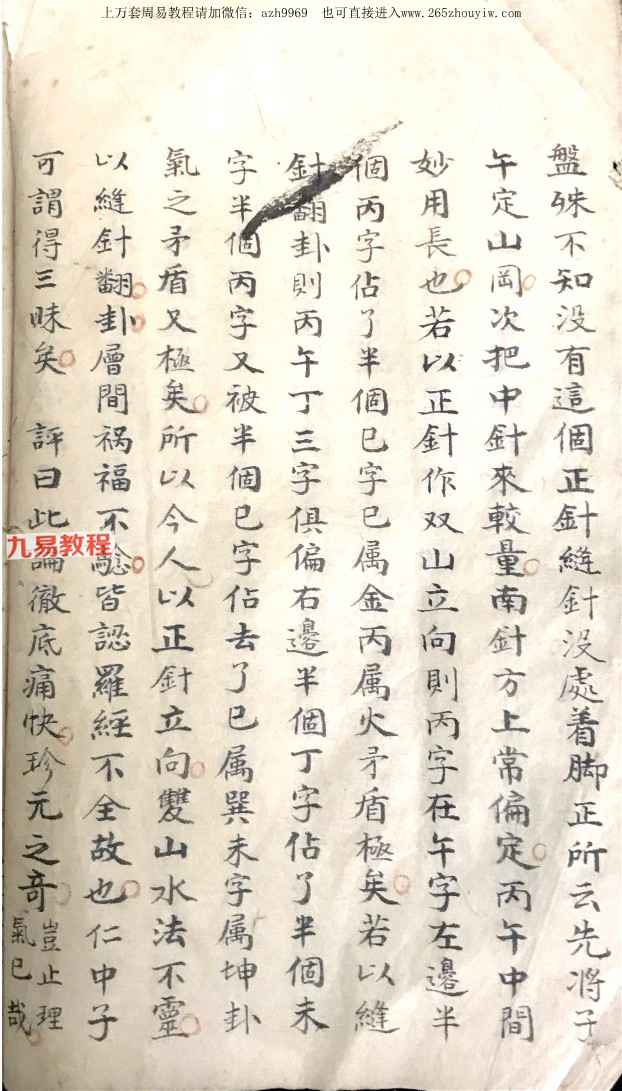 上万套周易教程请加微信：azh9969 也可直接进入www.265zhouyiw.com
盤殊不知没有這個正針縫針没處着脚正所云先将子
午定山岡次把中針來較量南針方上常偏定丙午中間
妙用長也若以正針作双山立向則丙字在午字左邊半
個丙字佔了半個巳字巳属金丙属火矛盾極矣若以縫
針翻卦則丙午丁三字俱偏右邊半個丁字佔了半個未
字半個丙字又被半個巳字佔去了巳属巽未字属坤卦
氣之矛盾又極矣所以今人以正針立向雙山水法不靈
以縫針翻卦層間禍福不驗皆認羅經不全故也仁中子
可謂得三昧矣 評曰此論徹底痛快珍元之竒豈止理氣已哉
九易教程